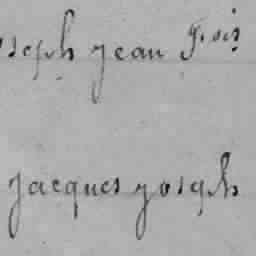 oseph jean f.ois
jacques joseph